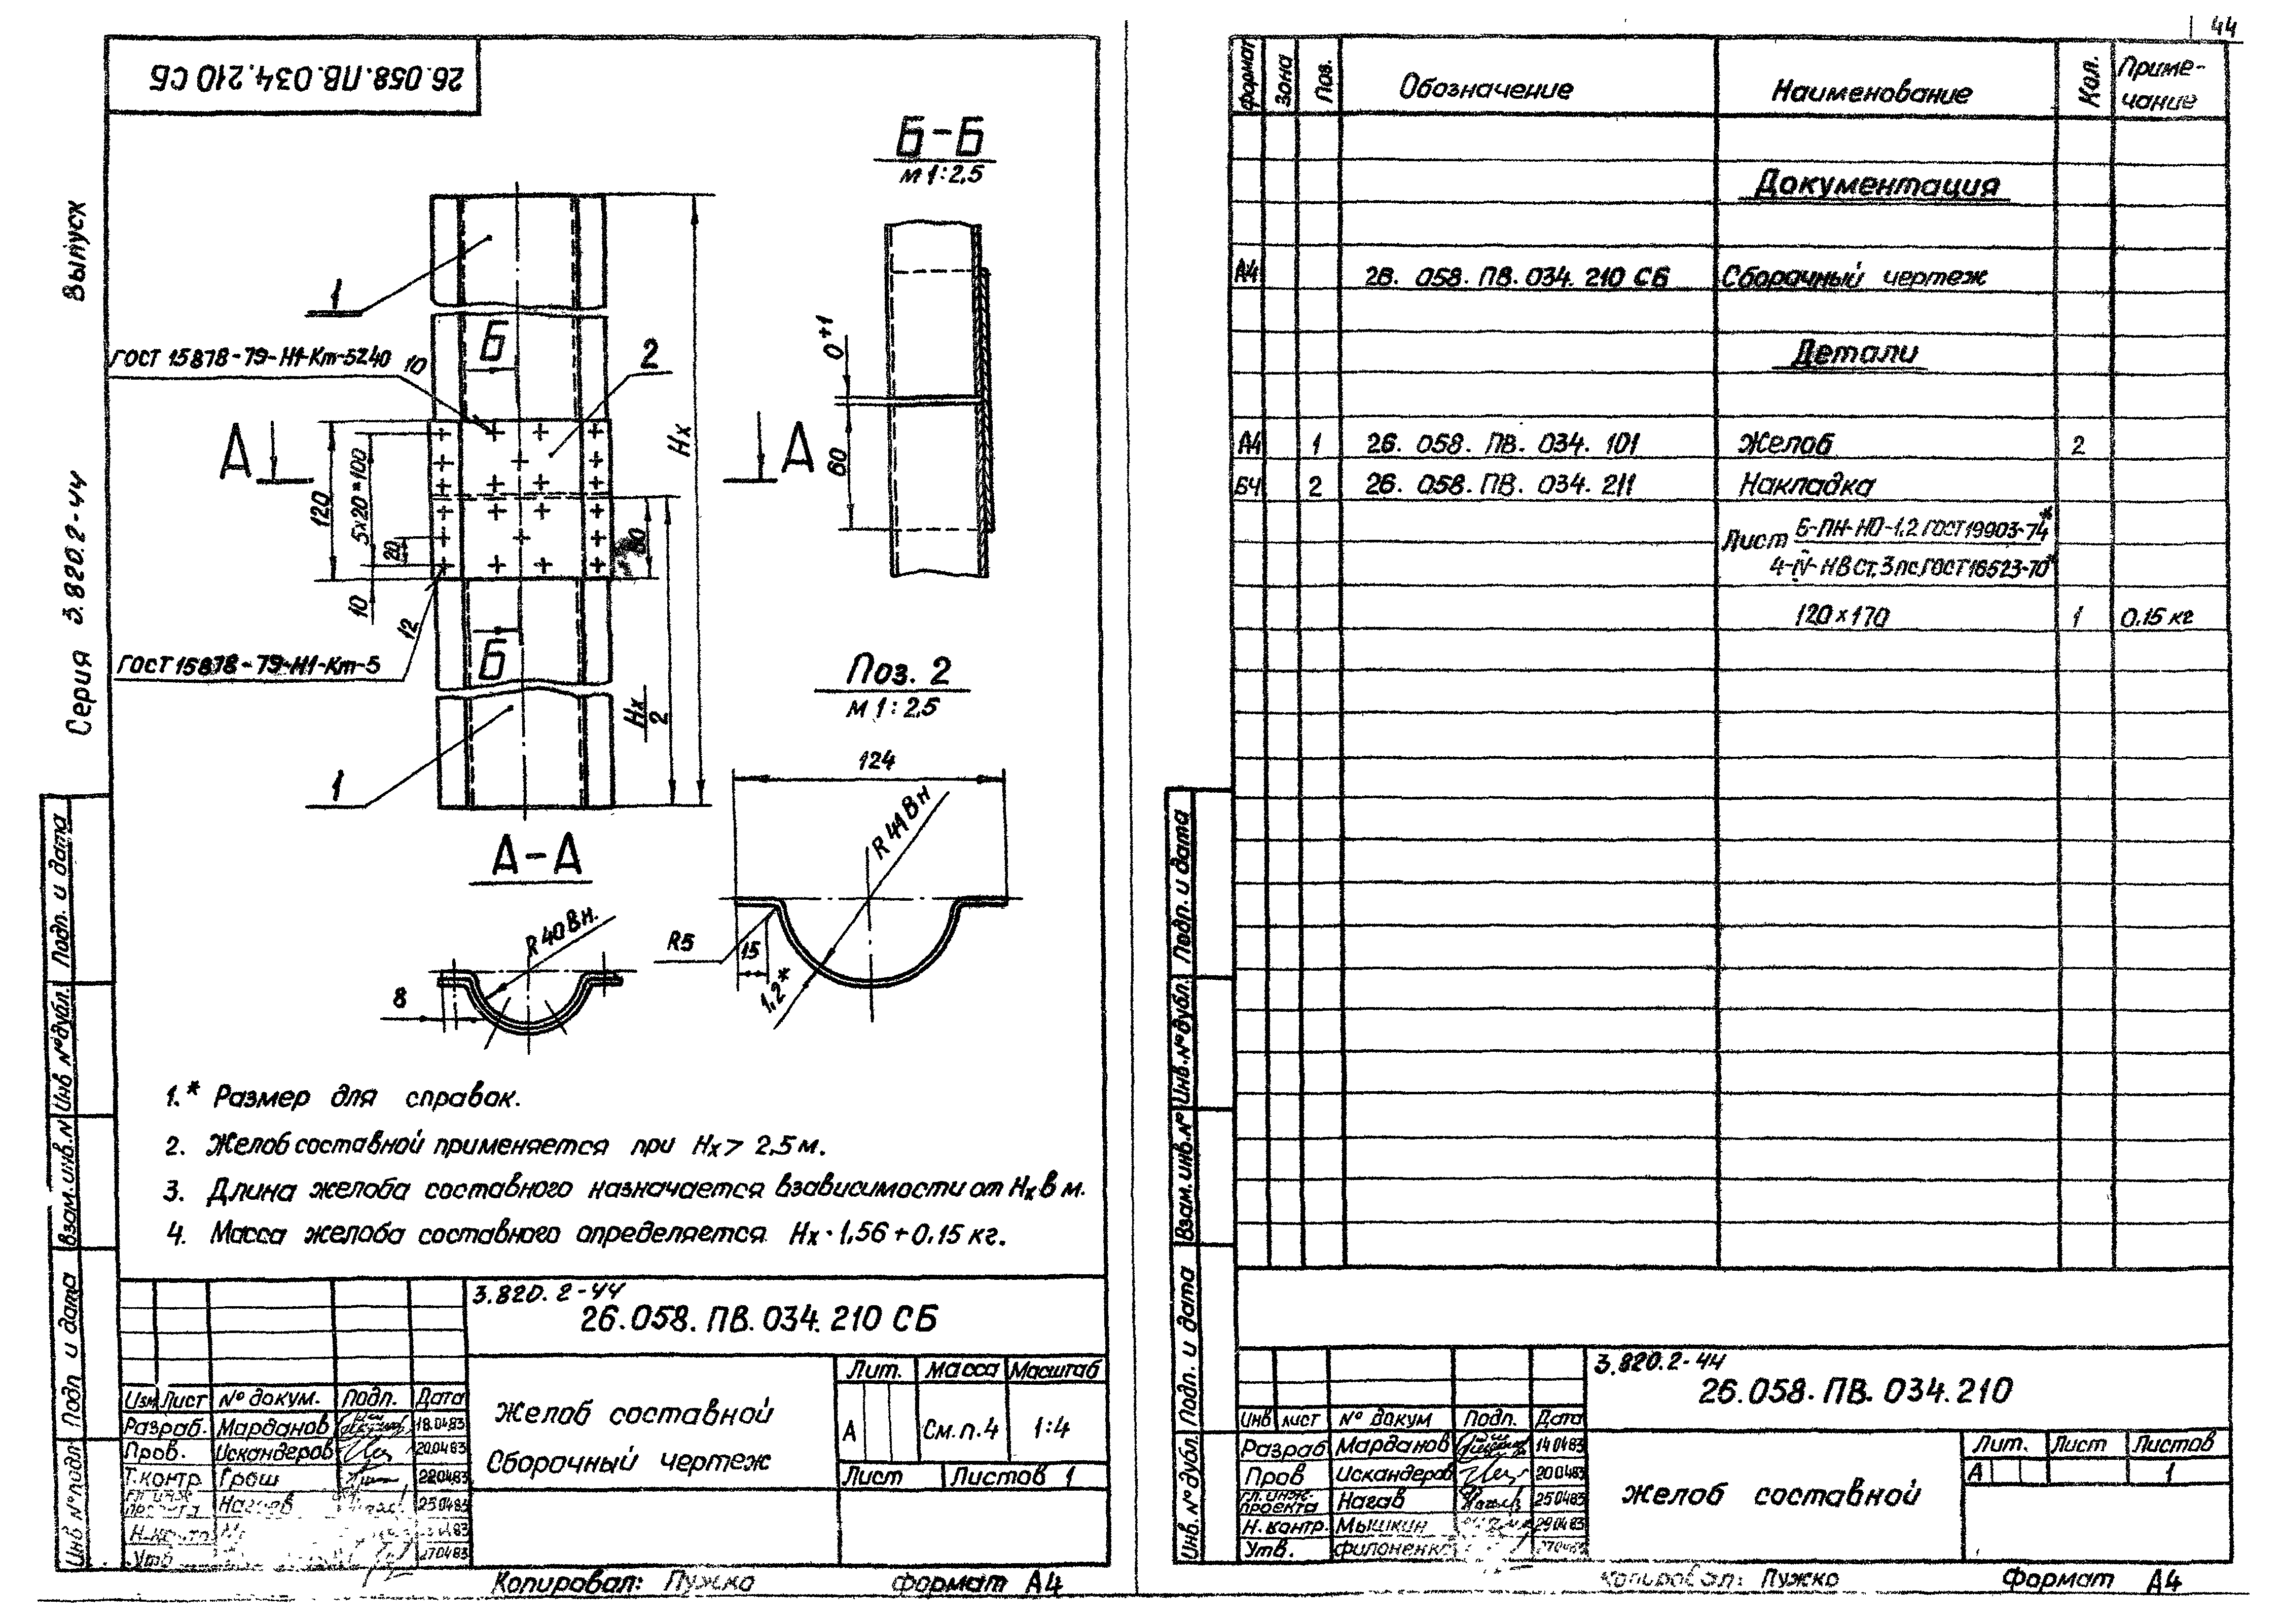 26.058.ПВ.034.210 СБ
Выпуск
Серия 3.820.2-44
Б-Б
М 1:2,5
1
ГОСТ 15878-79-Н1-Кт-5
10
Б
2
А
А
Hх
120
5х20*100
20
10
60
0+1
60
12
ГОСТ 15878-79-Н1-Кт-5
Б
Hх
2
1
Поз. 2
М 1:2,5
124
R 41 Вн
R5
15
1,2*
А-А
R 40 Вн.
8
1.* Размер для справок.
2. Желоб составной применяется при Hх > 2,5 м.
3. Длина желоба составного назначается взависимости от Hх в м.
4. Масса желоба составного определяется Hх · 1,56 + 0,15 кг.
Подп. и дата
Инв № дубл.
Взам. инв. №
Подп и дата
Инв № подл.
3.820.2-44
26.058.ПВ.034.210 СБ
Желоб составной
Сборочный чертеж
Лит. Масса Масштаб
А См.п.4 1:4
Лист Листов 1
Изм Лист № докум. Подп. Дата
Разраб. Марданов 18.04 83
Пров. Искандеров 20.04 83
Т.контр Грош 22.04 83
Нагаев 25 04 83
Н.контр
Утв 27 04 83
Копировал: Пужко Формат А4
44
Формат Зона Поз. Обозначение Наименование Кол. Приме-
чание
Документация
А4 2В. 058. ПВ. 034. 210 СБ Сборачный чертеж
Детали
А4 1 26. 058. ПВ. 034. 101 Желоб 2
БЧ 2 26. 058. ПВ. 034. 211 Накладка
Лист Б-ПН-НО-1,2 ГОСТ 19903-74*
4-IV-НВСт.3пс.ГОСТ 16523-70*
120 х 170 1 0,15 кг
Подп. и дата
Инв. № дубл.
Взам. инв. №
Подп. и дата
Инв. № дубл.
3.820.2-44
26.058.ПВ.034.210
Инв лист № докум Подп. Дата
Разраб Марданов 14 04 83
Пров Искандеров 20 04 83
Гл. инж. проекта Нагав 25 04 83
Н. контр. Мышкин 29 04 83
Утв. Филоненко
Желоб составной
Лит. Лист Листов
А 1
Копировал: Пужко Формат А4